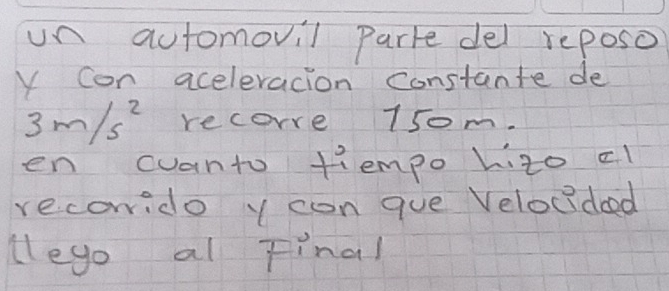 un automovil parte del reposo
y con aceleracion constante de
3m/s² recorre 150m.
en cuanto tiempo hizo el
recorrido y con que velocidad
llego al Final